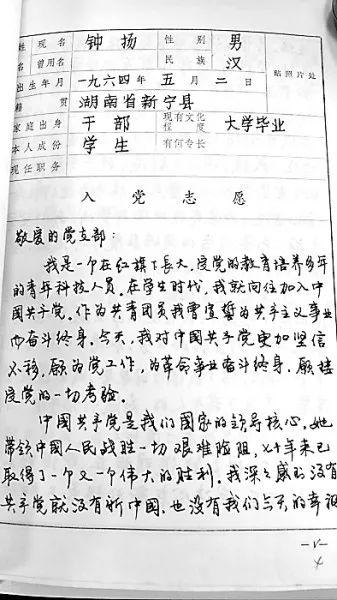 姓 现名 钟扬 性别 男
名 曾用名 民族 汉
出生年月 一九六四年 五月二日 贴照片处
籍贯 湖南省新宁县
家庭出身 干部 现有文化程度 大学毕业
本人成份 学生 有何专长
现任职务
入党志愿
敬爱的党支部：
我是一个在红旗下长大，受党的教育培养多年
的青年科技人员。在学生时代，我就向往加入中
国共产党。作为共青团员我曾宣誓为共产主义事业
而奋斗终身。今天，我对中国共产党更加坚信
不移，愿为党工作，为革命事业奋斗终身，愿接
受党的一切考验。
中国共产党是我们国家的领导核心，她
带领中国人民战胜一切艰难险阻，七十年来已
取得了一个又一个伟大的胜利。我深深感到没有
共产党就没有新中国，也没有我们今天的幸福